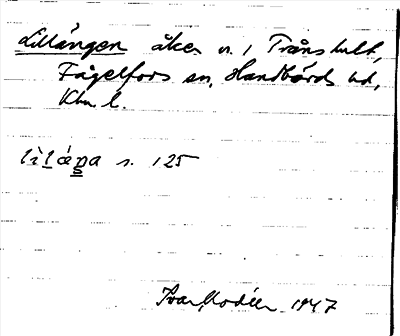 Lillängen åker n. i Trånshult,
Fågelfors sn, Handbörds hd,
Klm. l.
lìlǽŋa s. 125
Ivar Modéer 1947